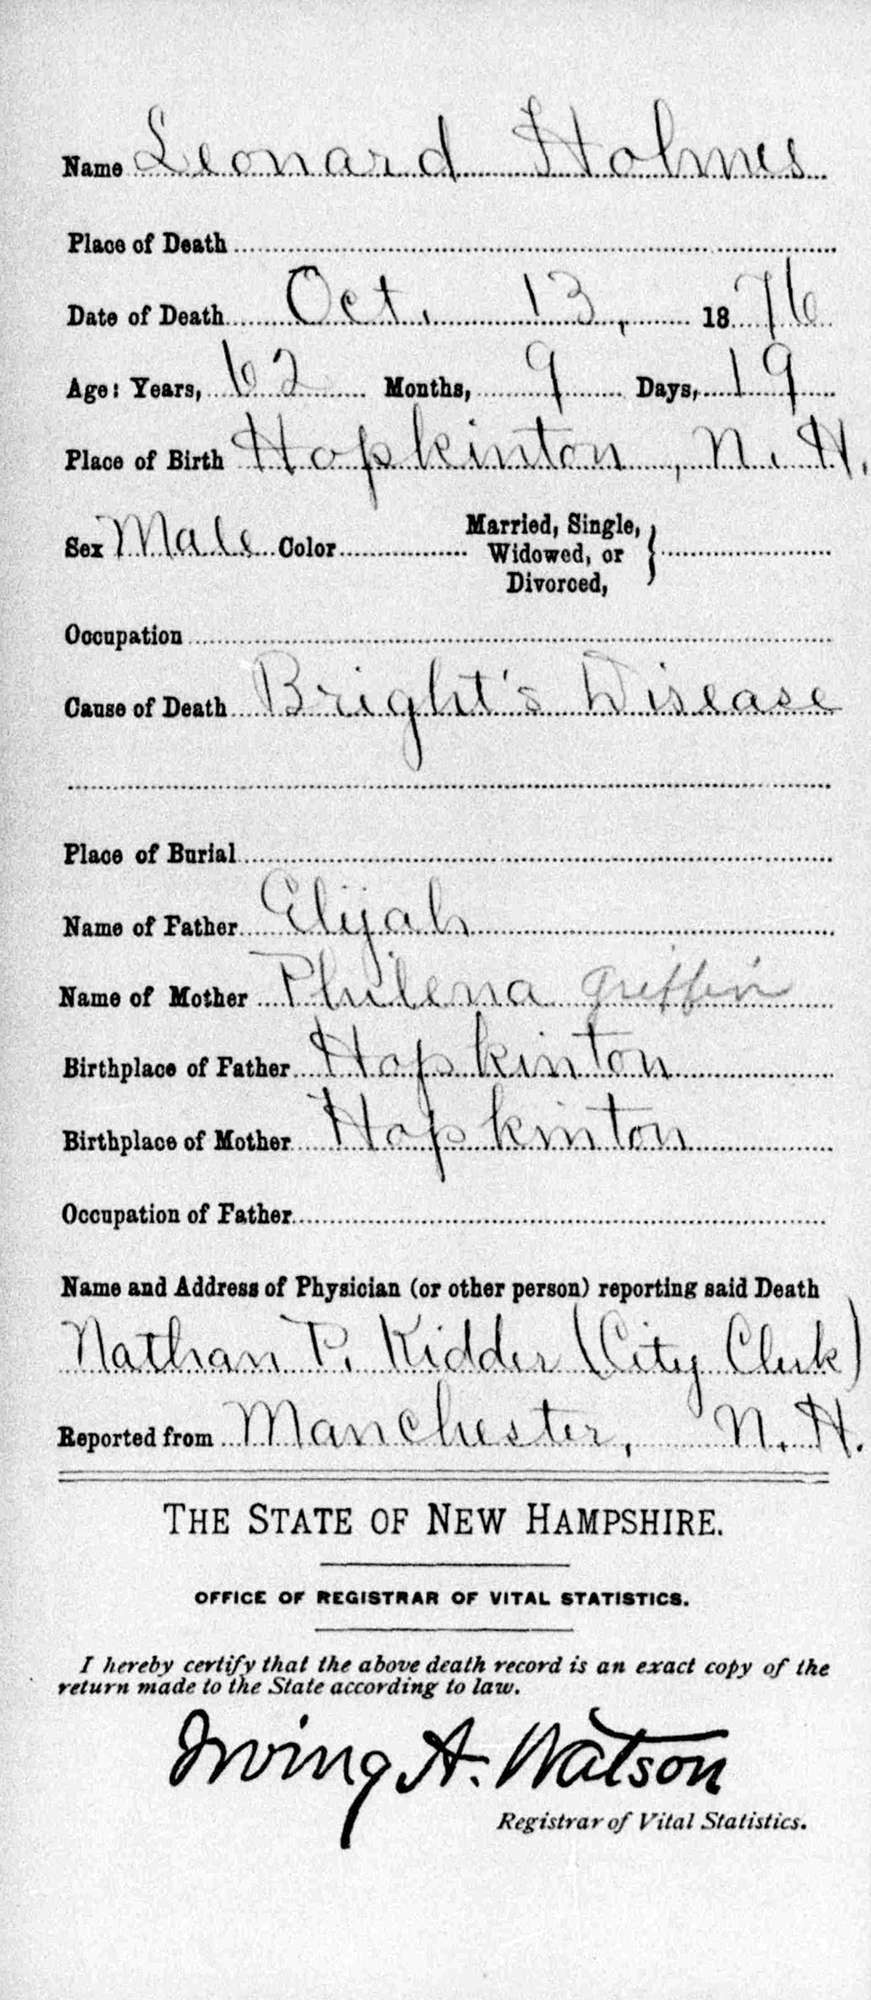 Name Leonard Holmes
Place of Death
Date of Death Oct. 13, 1876
Age: Years, 62 Months, 9 Days, 19
Place of Birth Hopkinton, N. H.
Sex Male Color Married, Single, Widowed, or Divorced,
Occupation
Cause of Death Bright's Disease
Place of Burial
Name of Father Elijah
Name of Mother Philena Griffin
Birthplace of Father Hopkinton
Birthplace of Mother Hopkinton
Occupation of Father
Name and Address of Physician (or other person) reporting said Death
Nathan P. Kidder (City Clerk)
Reported from Manchester, N. H.
THE STATE OF NEW HAMPSHIRE.
OFFICE OF REGISTRAR OF VITAL STATISTICS.
I hereby certify that the above death record is an exact copy of the
return made to the State according to law.
Irving A. Watson
Registrar of Vital Statistics.